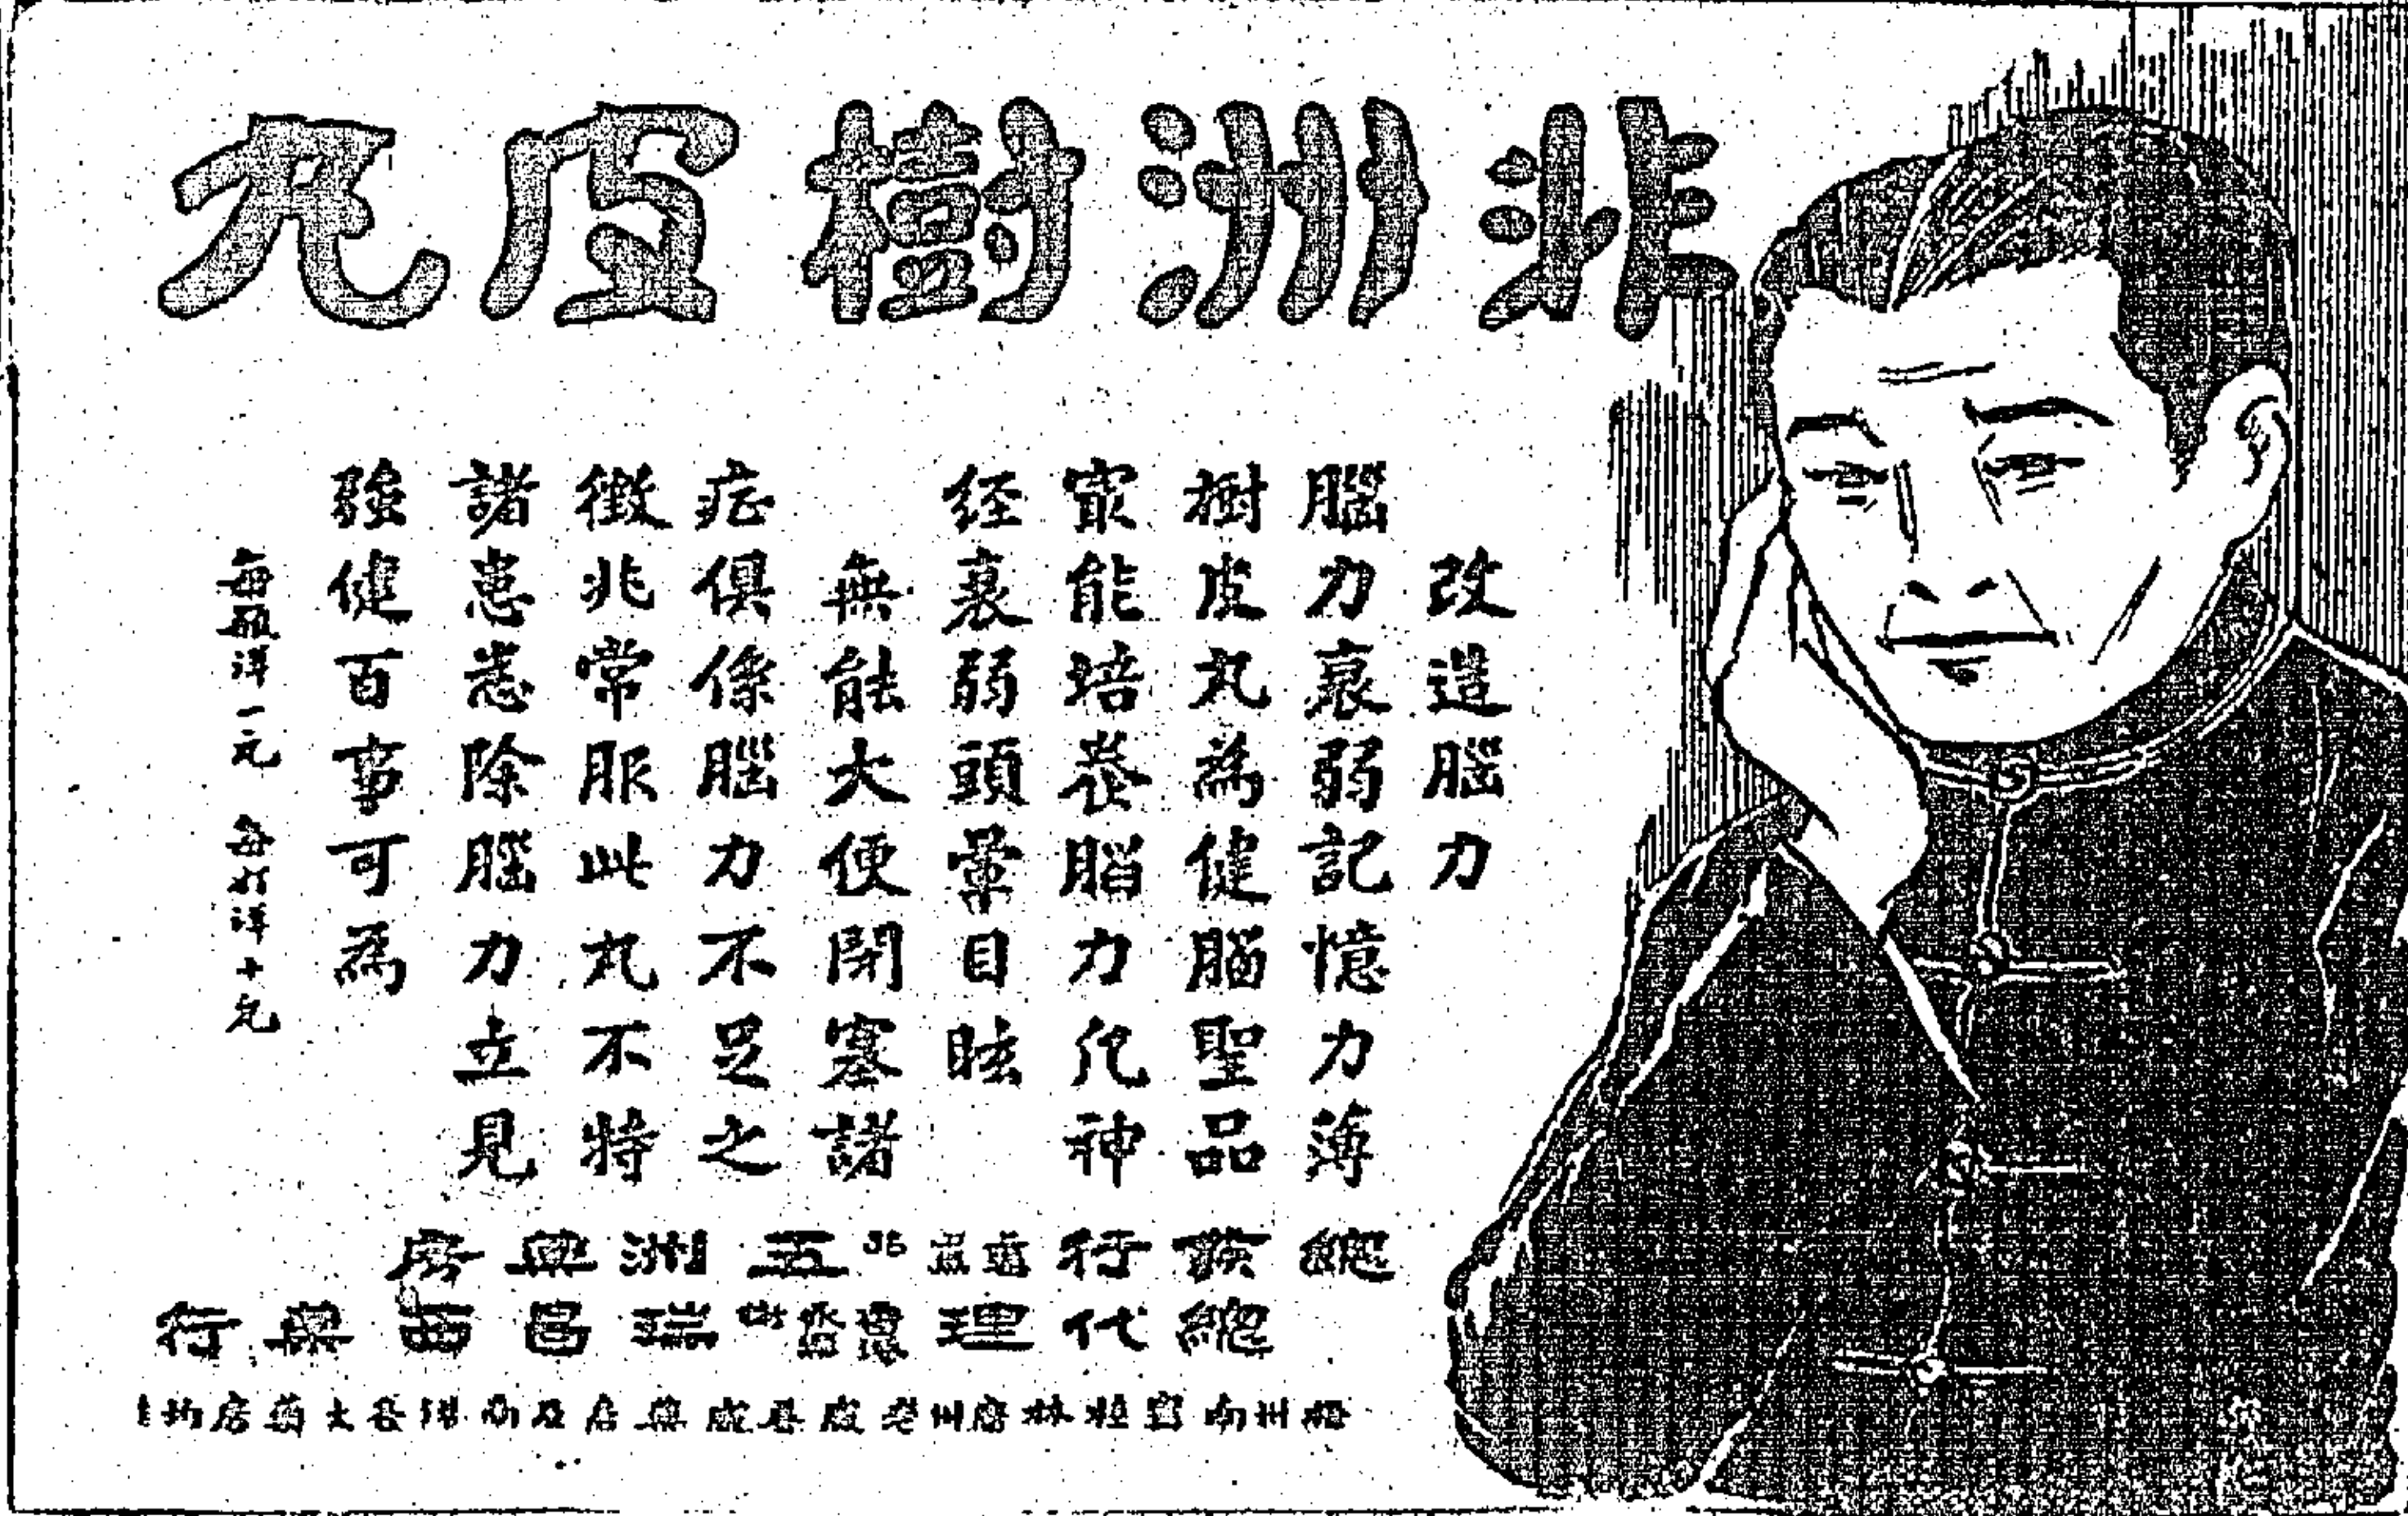 非洲樹皮丸
改造腦力
腦力衰弱記憶力薄
樹皮丸為健腦聖品
最能培養腦力凡神
经衰弱頭暈目眩
無能大便閉塞諸
症俱係腦力不足之
徵兆常服此丸不特
諸患悉除腦力立見
強健百事可為
每瓶洋一元 每打洋十元
總發行 五洲藥房
總代理 瑞昌西藥行
梧州南寧桂林 州 藥店及南洋各大药房均